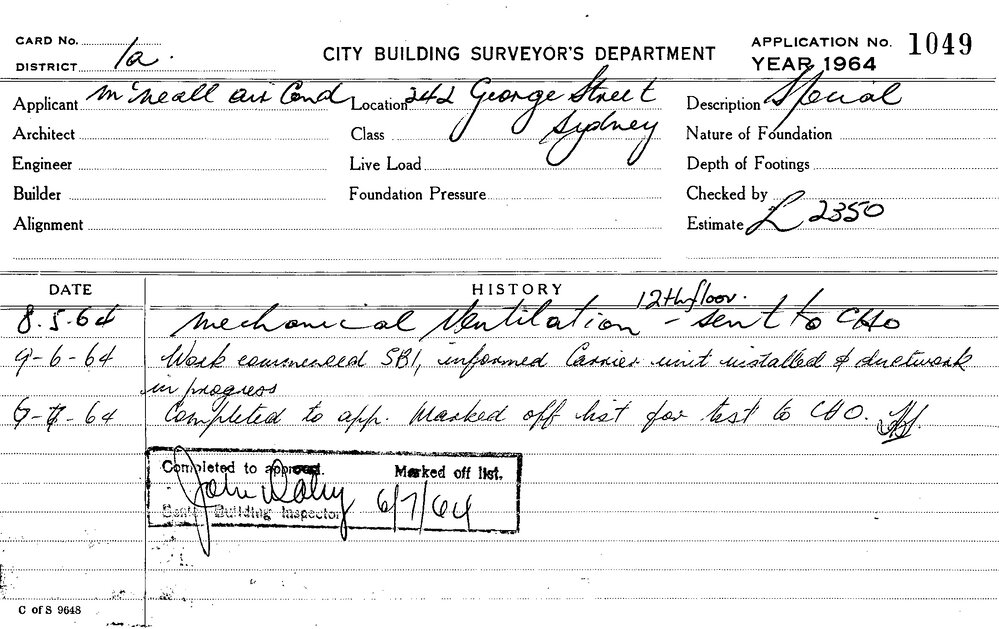 CARD No.
DISTRICT 1a.
CITY BUILDING SURVEYOR'S DEPARTMENT
APPLICATION No. 1049
YEAR 1964
Applicant McNeall Air Cond Location 242 George Street Description Special
Architect Class Sydney Nature of Foundation
Engineer Live Load Depth of Footings
Builder Foundation Pressure Checked by
Alignment Estimate £ 2350
DATE HISTORY
12th floor.
8.5.64 Mechanical Ventilation - sent to CHO
9-6-64 Work commenced SBI, informed Carrier unit installed & ductwork
in progress
-64 Completed to app. Marked off list for test to CHO.
Completed to approval. Marked off list.
John Daly 6/7/64
Building Inspector
C of S 9648